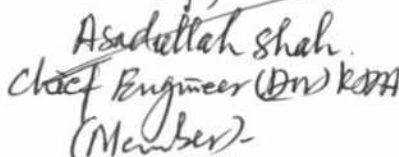 Asadullah Shah.
Chief Engineer (Dn) KDA
(Member)-